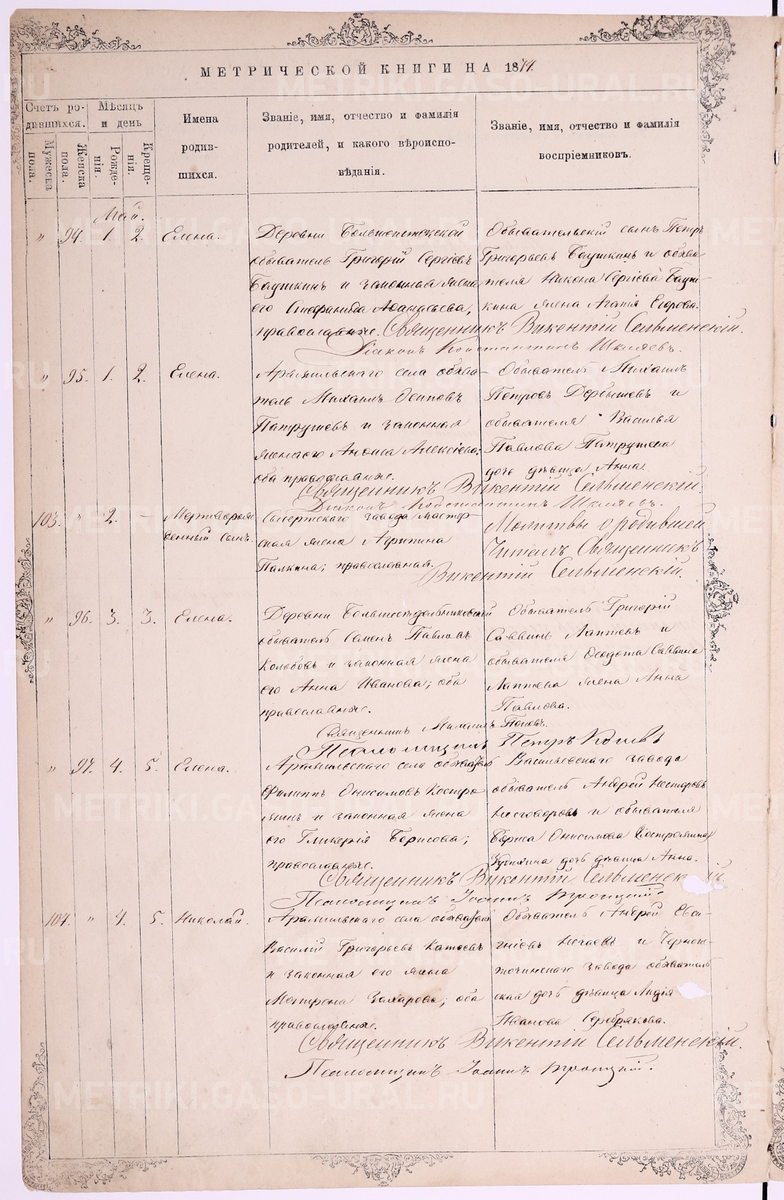 МЕТРИЧЕСКОЙ КНИГИ НА 1874.
Счетъ ро-
дившихся.
Мужеска
пола.
Женска
пола.
Мѣсяцъ
и день
Рожде-
нія.
Креще-
нія.
Имена
родив-
шихся.
Званіе, имя, отчество и фамилія
родителей, и какого вѣроиспо-
вѣданія.
Званіе, имя, отчество и фамилія
воспріемниковъ.
Май.
" 94. 1. 2. Елена.
Деревни
обыватель Григорій Сергѣевъ
Баушкинъ и законная жена
его Стефанида Аѳанасьева,
православные.
Обывательскій сынъ Петръ
Григорьевъ Баушкинъ и обыва-
теля Никона Сергѣева Бауш-
кина жена Агапія Егорова.
Священникъ Викентій Сельменскій.
Діаконъ Константинъ Шкляевъ.
" 95. 1. 2. Елена.
Арамильскаго села обыва-
тель Михаилъ Осиповъ
Патрушевъ и законная
жена его Анисья Алексѣева;
оба православные.
Обыватель Михаилъ
Петровъ Дербышевъ и
обывателя Василья
Павлова Патрушева
дочь дѣвица Анна.
Священникъ Викентій Сельменскій.
Діаконъ Константинъ Шкляевъ.
103. " 2. — Мертворож-
денный сынъ.
Сысертскаго завода мастер-
ская жена Агрипина
Палкина; православная.
Молитвы о родившей
Читалъ Священникъ
Викентій Сельменскій.
" 96. 3. 3. Елена.
Деревни
обыватель Семенъ Павловъ
Колобовъ и законная жена
его Анна Иванова; оба
православные.
Обыватель Григорій
Саввинъ Лаптевъ и
обывателя Ѳеодота Саввина
Лаптева жена Анна
Павлова.
Священникъ Михаилъ Поповъ.
Псаломщикъ Петръ
" 97. 4. 5. Елена.
Арамильскаго села обыватель
Филиппъ Онисимовъ Костро-
минъ и законная жена
его Гликерія Борисова;
православные.
Васильевскаго завода
обыватель Андрей Нестеровъ
и обывателя
Онисимова Костромина
дочь дѣвица Анна.
Священникъ Викентій Сельменскій.
Псаломщикъ Іоаннъ Троицкій.
104. " 4. 5. Николай.
Арамильскаго села обыватель
Василій Григорьевъ Катаевъ
и законная его жена
Матрона Захарова; оба
православные.
Обыватель Андрей Евси-
гніевъ и Черно-
источинскаго завода обыватель-
ская дочь дѣвица Лидія
Иванова Серебрякова.
Священникъ Викентій Сельменскій.
Псаломщикъ Іоаннъ Троицкій.
METRIKI.GASO-URAL.RU